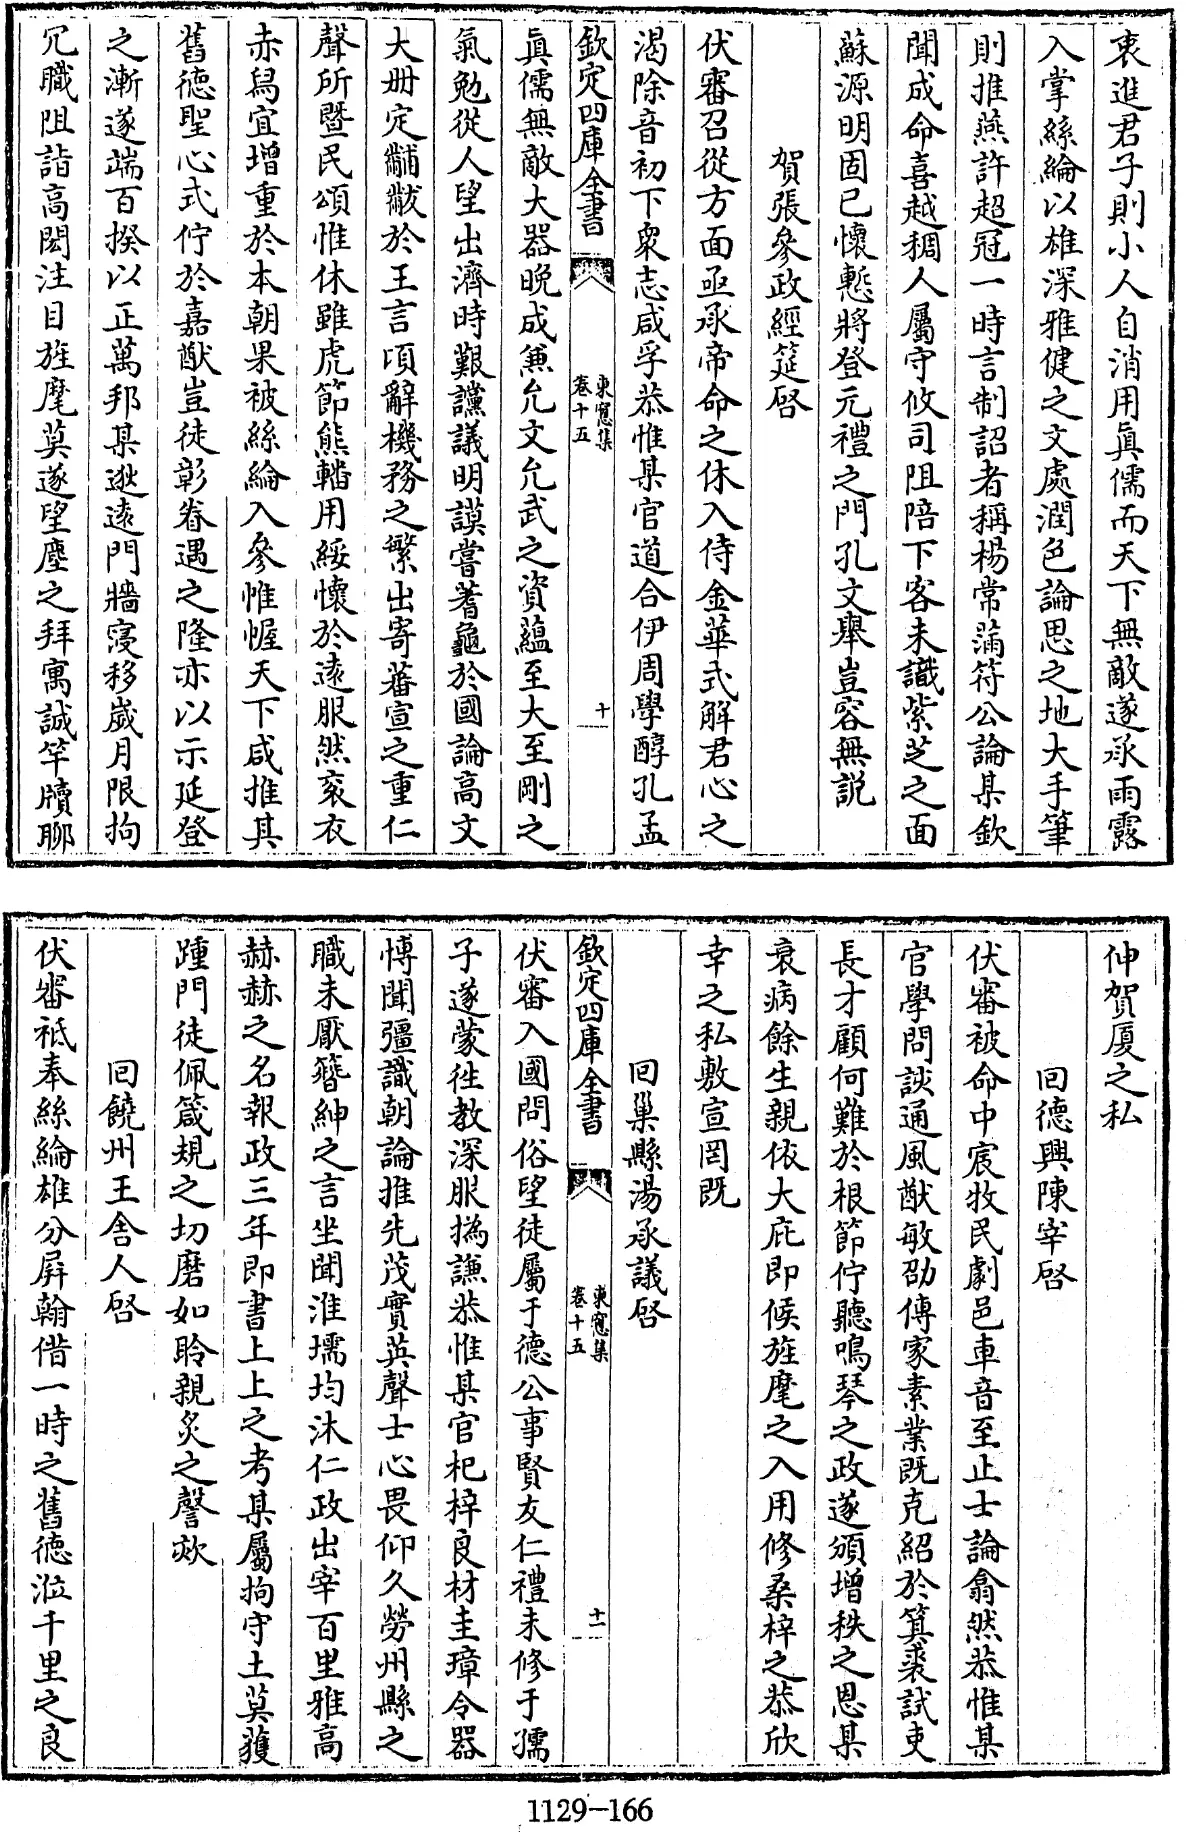 衷進君子則小人自消用真儒而天下無敵遂承雨露
入掌絲綸以雄深雅健之文處潤色論思之地大手筆
則推燕許超冠一時言制詔者稱楊常蒲符公論某欽
聞成命喜越稠人屬守攸司阻陪下客未識紫芝之面
蘇源明固已懷慙將登元禮之門孔文舉豈容無説
賀張參政經筵啓
伏審召從方面亟承帝命之休入侍金華式解君心之
渴除音初下衆志咸孚恭惟某官道合伊周學醇孔孟
欽定四庫全書
東窻集
卷十五
十
真儒無敵大器晩成兼允文允武之資蘊至大至剛之
氣勉從人望出濟時艱讜議明謨嘗蓍龜於國論高文
大册定黼黻於王言頃辭機務之繁出寄蕃宣之重仁
聲所暨民頌惟休雖虎節熊轓用綏懷於逺服然衮衣
赤舄宜增重於本朝果被絲綸入參惟幄天下咸推其
舊德聖心式佇於嘉猷豈徒彰眷遇之隆亦以示延登
之漸遂端百揆以正萬邦某逖逺門牆寖移嵗月限拘
冗職阻詣高閎注目旌麾莫遂望塵之拜寓誠竿牘聊
伸賀厦之私
回德興陳宰啓
伏審被命中宸牧民劇邑車音至止士論翕然恭惟某
官學問談通風猷敏劭傳家素業既克紹於箕裘試吏
長才顧何難於根節佇聽鳴琴之政遂頒增秩之恩某
衰病餘生親依大庇即候旌麾之入用修桑梓之恭欣
幸之私敷宣罔既
回巢縣湯承議啓
欽定四庫全書
東窻集
卷十五
十一
伏審入國問俗望徒屬于德公事賢友仁禮未修于孺
子遂蒙徃教深服撝謙恭惟某官杞梓良材圭璋令器
博聞彊識朝論推先茂實英聲士心畏仰久勞州縣之
職未厭簪紳之言坐聞淮壖均沐仁政出宰百里雅高
赫赫之名報政三年即書上上之考某屬拘守土莫獲
踵門徒佩箴規之切磨如聆親炙之謦欬
回饒州王舍人啓
伏審祗奉絲綸雄分屏翰借一時之舊德涖千里之良
1129-166